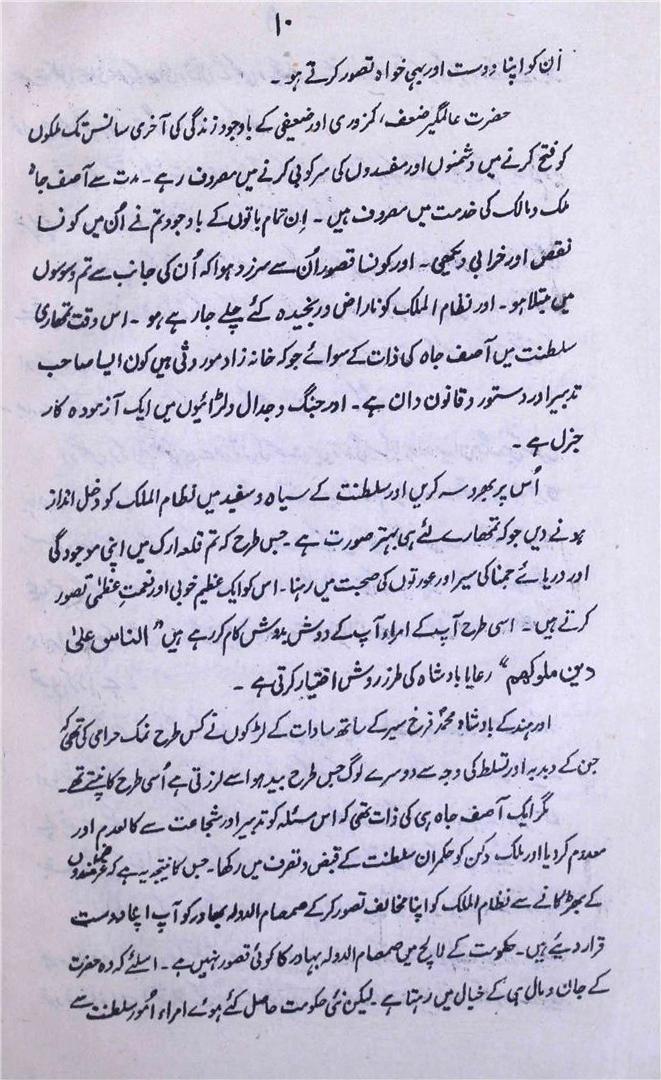 ۱۰
اُن کو اپنا دوست اور بہی خواہ تصور کرتے ہو۔
حضرت عالمگیر ضعف، کمزوری اور ضعیفی کے باوجود زندگی کی آخری سانس تک ملکوں
کو فتح کرنے میں دشمنوں اور مفسدوں کی سرکوبی کرنے میں مصروف رہے۔ مدت سے آصف جاہ
ملک و مالک کی خدمت میں مصروف ہیں۔ اِن تمام باتوں کے باوجود تم نے اُن میں کونسا
نقص اور خرابی دیکھی۔ اور کونسا قصور اُن سے سرزد ہوا کہ اُن کی جانب سے تم وسوسوں
میں مبتلا ہو۔ اور نظام الملک کو ناراض و رنجیدہ کئے چلے جا رہے ہو۔ اس وقت تمھاری
سلطنت میں آصف جاہ کی ذات کے سوائے جو کہ خانہ زاد موروثی ہیں کون ایسا صاحب
تدبیر اور دستور و قانون دان ہے۔ اور جنگ و جدال و لڑائیوں میں ایک آزمودہ کار
جنرل ہے۔
اُس پر بھروسہ کریں اور سلطنت کے سیاہ و سفید میں نظام الملک کو دخل انداز
ہونے دیں جو کہ تمھارے لئے ہی بہتر صورت ہے۔ جس طرح کہ تم قلعہ ارک میں اپنی موجودگی
اور دریائے جمنا کی سیر اور عورتوں کی صحبت میں رہنا۔ اس کو ایک عظیم خوبی اور نعمتِ عظمیٰ تصور
کرتے ہیں۔ اسی طرح آپ کے امراء آپ کے دوش بدوش کام کر رہے ہیں "الناس علیٰ
دین ملوکھم" رعایا بادشاہ کی طرز روش اختیار کرتی ہے۔
اور ہند کے بادشاہ محمدؐ فرخ سیر کے ساتھ سادات کے لڑکوں نے کس طرح نمک حرامی کی تھی کہ
جن کے دبدبہ اور تسلط کی وجہ سے دوسرے لوگ جس طرح بید ہوا سے لرزتی ہے اُسی طرح کانپتے تھے۔
مگر ایک آصف جاہ ہی کی ذات تھی کہ اس مسئلہ کو تدبیر اور شجاعت سے کالعدم اور
معدوم کر دیا اور ملک دکن کو حکمران سلطنت کے قبض و تصرف میں رکھا۔ جس کا نتیجہ یہ ہے کہ
کے بھڑکانے سے نظام الملک کو اپنا مخالف تصور کر کے صمصام الدولہ بہادر کو آپ اپنا دوست
قرار دیئے ہیں۔ حکومت کے لالچ میں صمصام الدولہ بہادر کا کوئی قصور نہیں ہے۔ اسلئے کہ وہ حضرت
کے جان و مال ہی کے خیال میں رہتا ہے۔ لیکن نئی حکومت حاصل کئے ہوئے امراء اُمور سلطنت سے